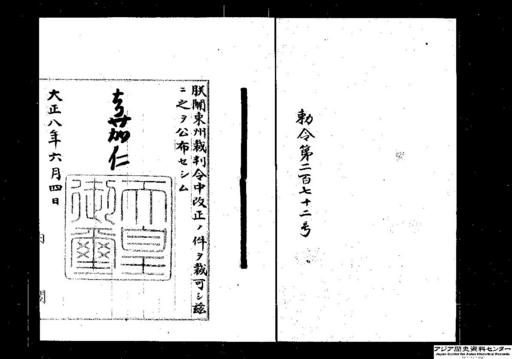 勅令第二百七十二号
朕關東州裁判令中改正ノ件ヲ裁可シ茲
ニ之ヲ公布セシム
嘉仁
天皇御璽
大正八年六月四日
内閣
アジア歴史資料センター
Japan Center for Asian Historical Records